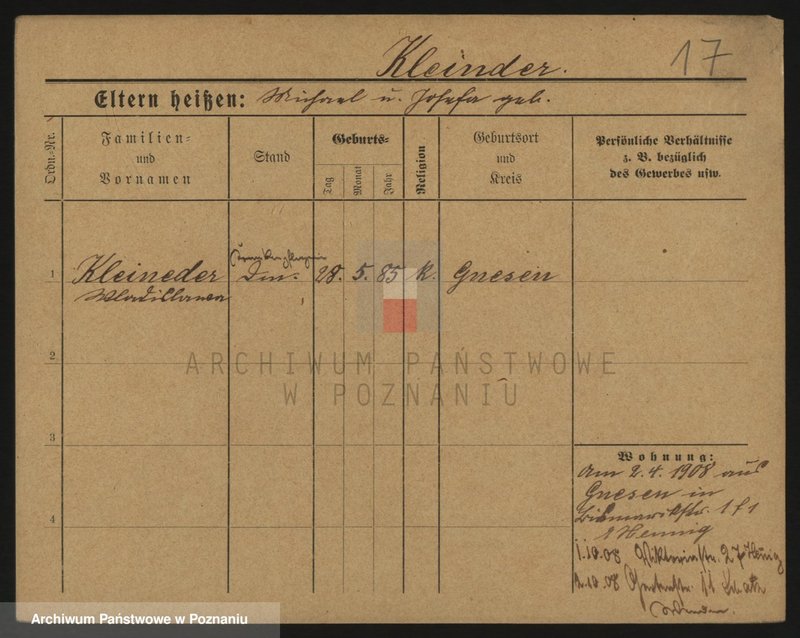 17
Kleinder.
Eltern heißen: Michael u. Josefa geb.
Ordn.-Nr.
Familien-
und
Vornamen
Stand
Geburts-
Tag
Monat
Jahr
Religion
Geburtsort
und
Kreis
Persönliche Verhältnisse
z. B. bezüglich
des Gewerbes usw.
1 Kleineder 28. 5. 85 k. Gnesen
Wladislawa
2
ARCHIWUM PAŃSTWOWE
W POZNANIU
3
Wohnung:
Am 2.4.1908 aus
Gnesen in
Bismarckstr. 1 f 1
Hennig
4
1.10.08 Viktoriastr. 27 Hennig
1.10.08 11
Archiwum Państwowe w Poznaniu